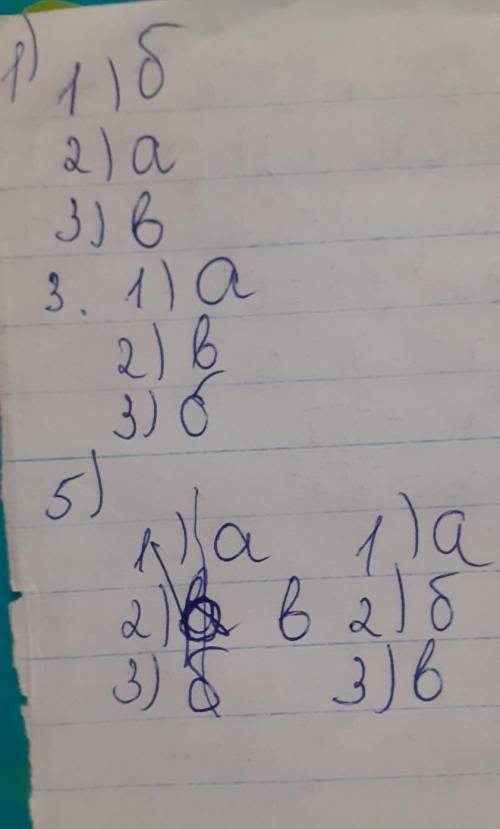 1)
1) б
2) а
3) в
3. 1) а
2) в
3) б
5)
1) а 1) а
2) в 2) б
3) б 3) в